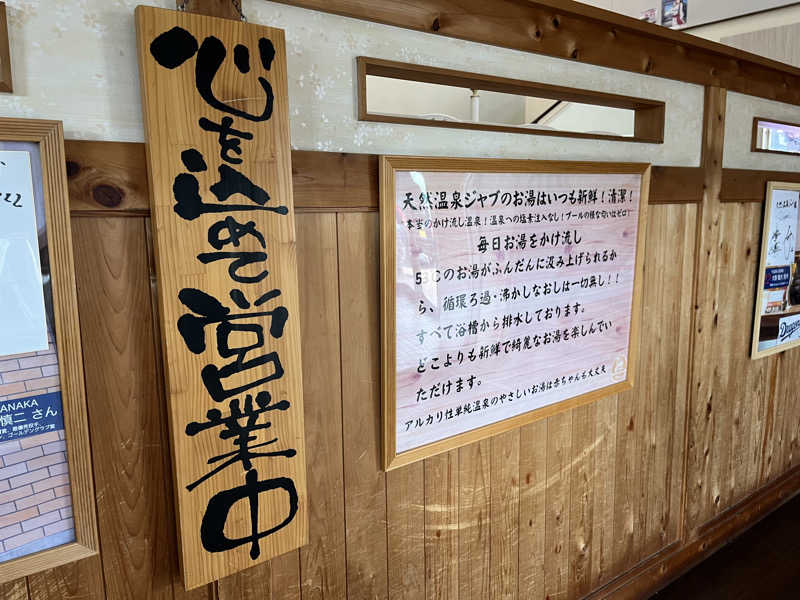 心を込めて営業中
天然温泉ジャブのお湯はいつも新鮮!清潔!
本当のかけ流し温泉!温泉への塩素注入なし!プールの様な匂いはゼロ!
毎日お湯をかけ流し
53℃のお湯がふんだんに汲み上げられるか
ら、循環ろ過・沸かしなおしは一切無し!!
すべて浴槽から排水しております。
どこよりも新鮮で綺麗なお湯を楽しんでい
ただけます。
アルカリ性単純温泉のやさしいお湯は赤ちゃんも大丈夫
ANAKA
慎二 さん